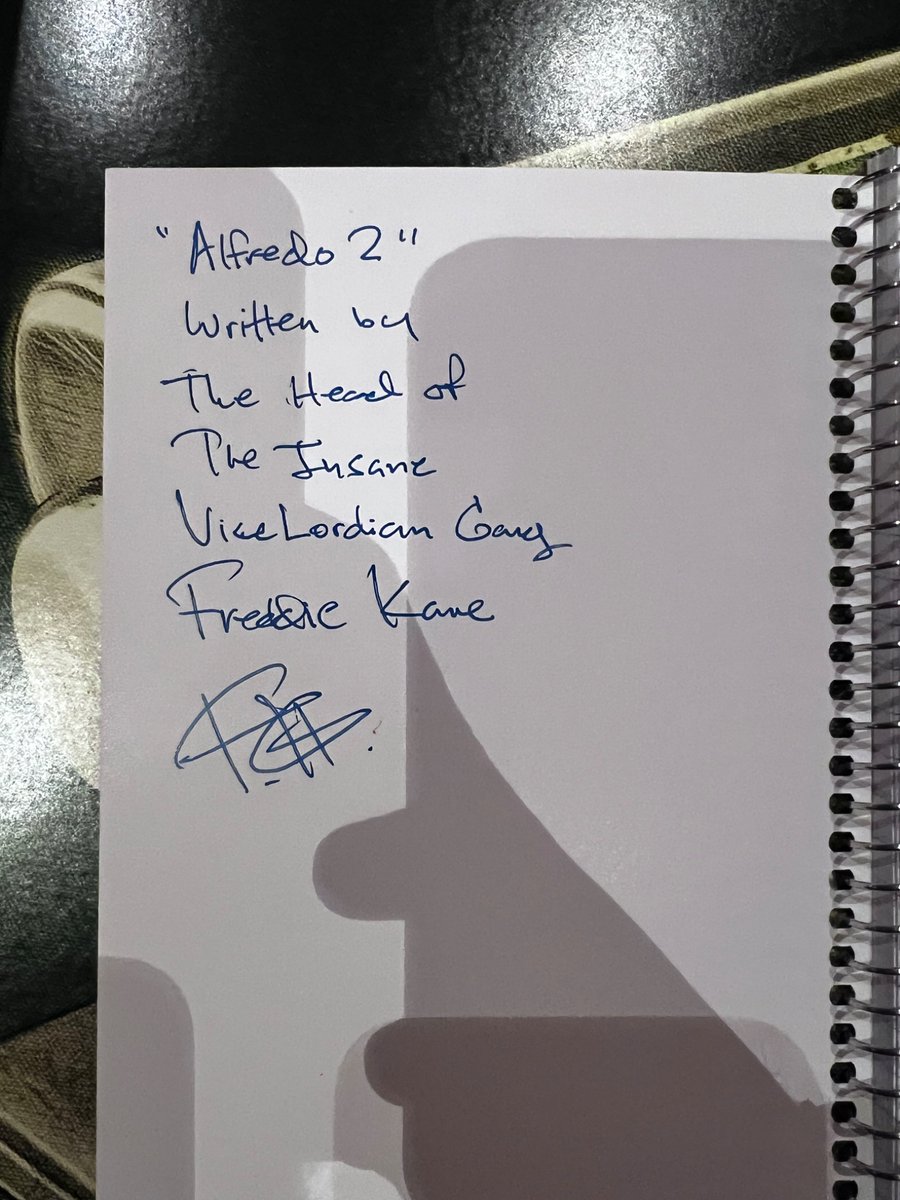 "Alfredo 2"
Written by
The Head of
The Insane
ViceLordian Gang
Freddie Kane